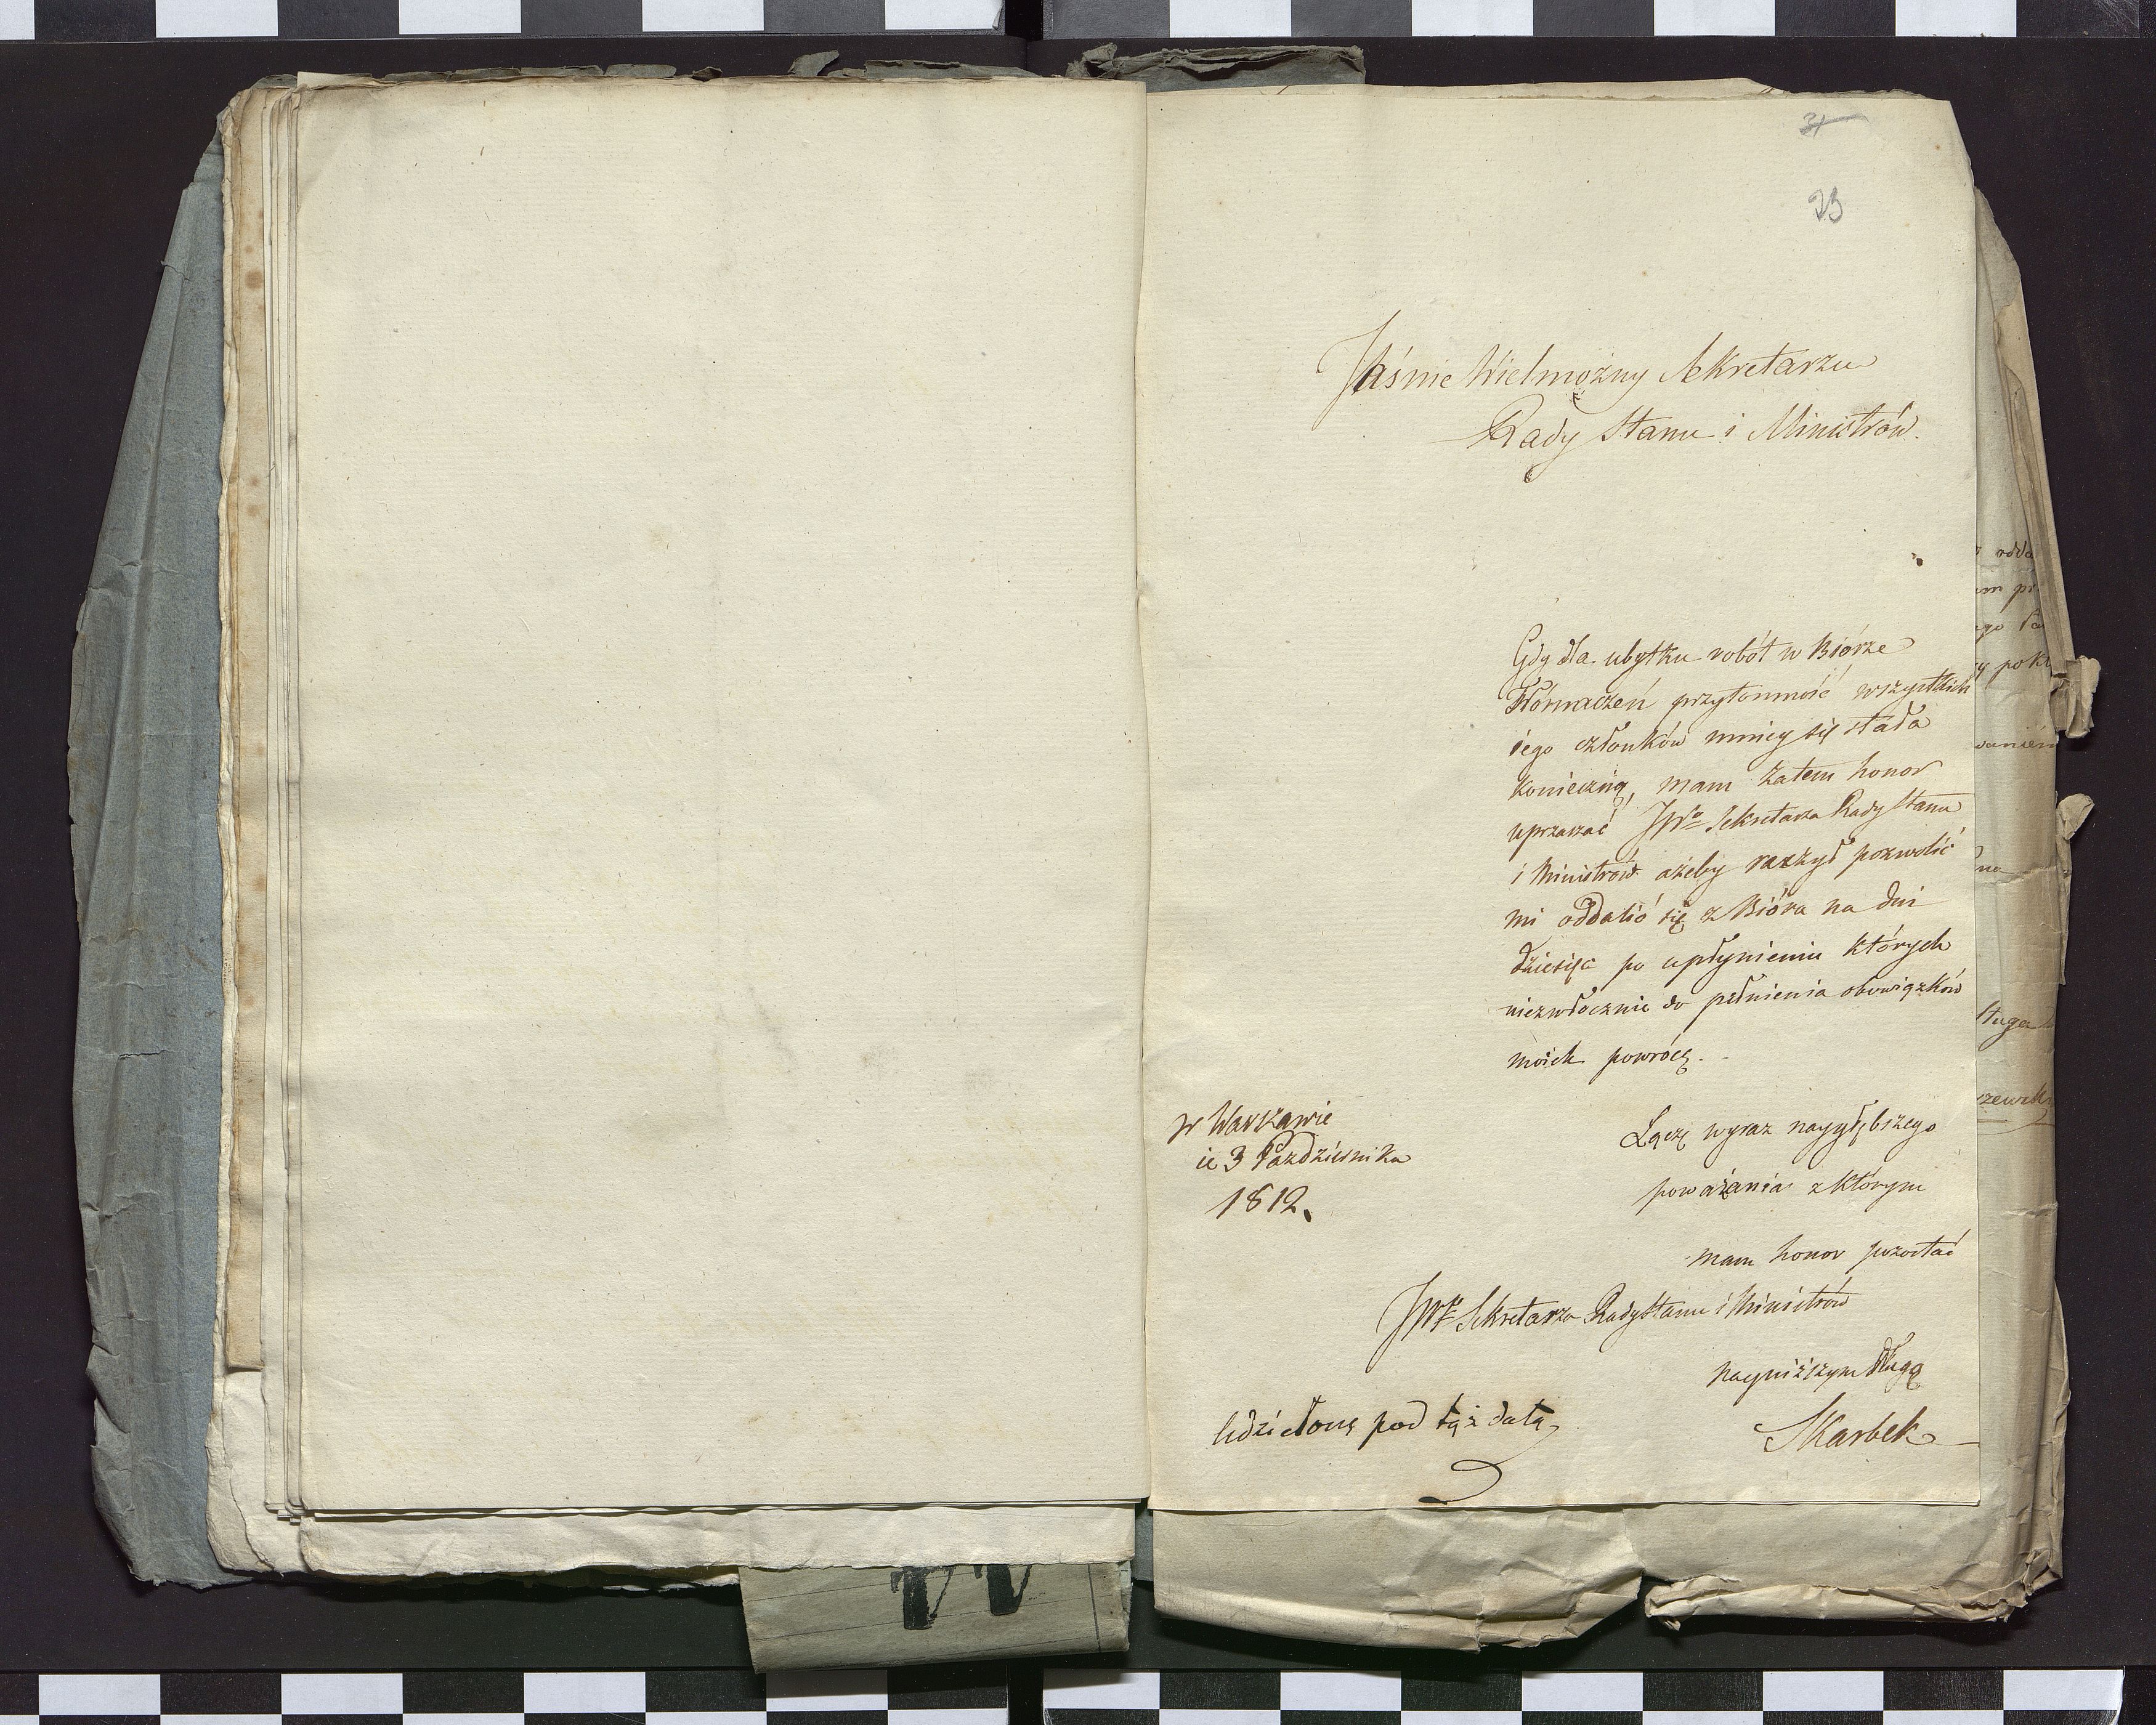 31
23
Jaśnie Wielmożny Sekretarzu
Rady Stanu i Ministrów.
Gdy dla ubytku robót w Biórze
Tłómaczeń przytomność wszystkich
iego członków mniey się stała
konieczną, mam zatem honor
upraszać JWo Sekretarza Rady Stanu
i Ministrów ażeby raczył pozwolić
mi oddalić się z Bióra na dni
dziesięć po upłynieniu których
niezwłocznie do pełnienia obowiązków
moich powrócę.
w Warszawie
3 Października
1812.
Łączę wyraz naygłębszego
poważania z którym
mam honor pozostać
JWo Sekretarza Rady Stanu i Ministrów
nayniższym sługą
Skarbek
Udzielone pod tąż datą